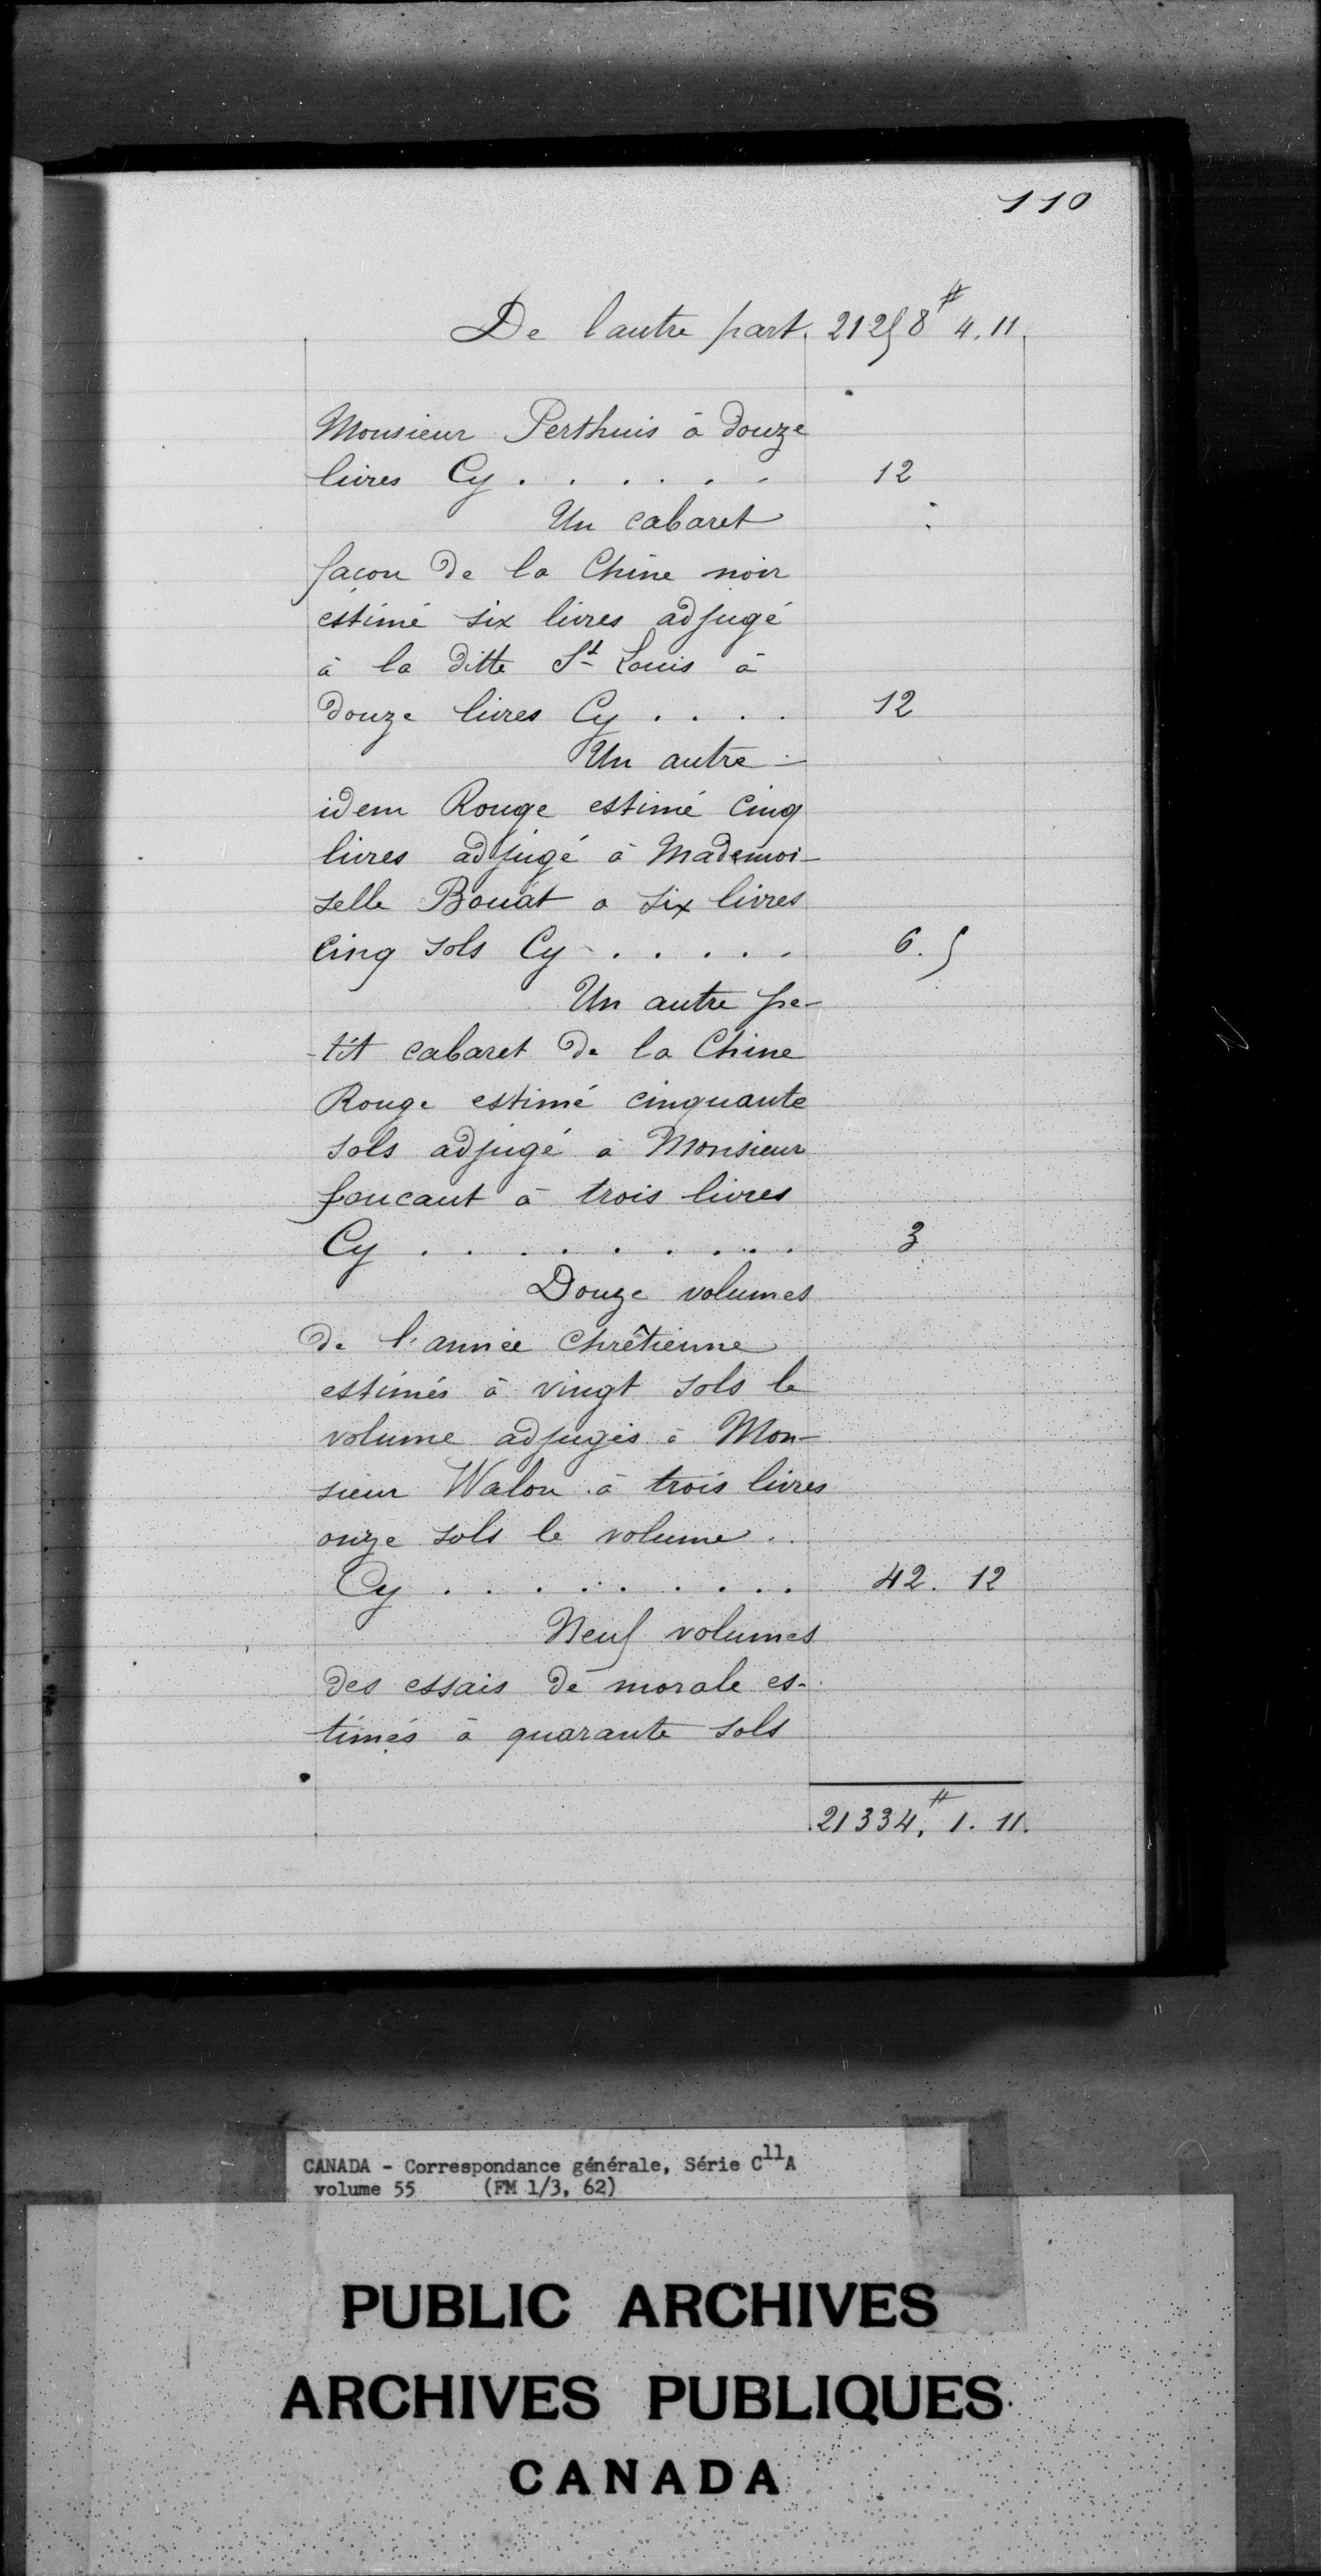 110
De lautre part. 21258# 4.11.
Monsieur Perthuis à douze
livres Cy . . . . . . 12
Un cabaret
façon de la Chine noir
éstimé six livres adjugé
à la ditte St Louis à
douze livres Cy . . . . 12
Un autre
idem Rouge estimé cinq
livres adjugé à Mademoi-
selle Bouat a six livres
cinq sols Cy . . . . . 6. 5
Un autre pe-
-tit cabaret de la Chine
Rouge estimé cinquante
sols adjugé à Monsieur
foucaut à trois livres
Cy . . . . . . . . 3
Douze volumes
de l'année Chrêtienne
estimés à vingt sols le
volume adjugés à Mon-
sieur Walon à trois livres
onze sols le volume .
Cy . . . . . . . . 42. 12
Neuf volumes
des essais de morale es-
timés à quarante sols
21334,# 1. 11.
CANADA - Correspondance générale, Série C11A
volume 55 (FM 1/3, 62)
PUBLIC ARCHIVES
ARCHIVES PUBLIQUES
CANADA